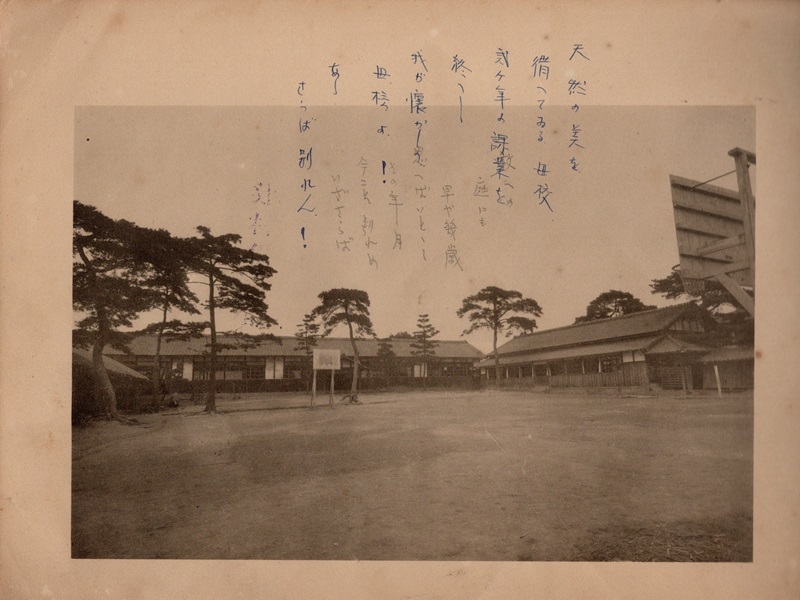 天然の美を
備へてゐる母校、
弐ヶ年の課業を
終へし
我が懐かし
母校よ!
あゝ
さらば別れん!
教への
庭にも
早や幾歳
思へばいととし
この年月
今こそ別れめ
いざさらば